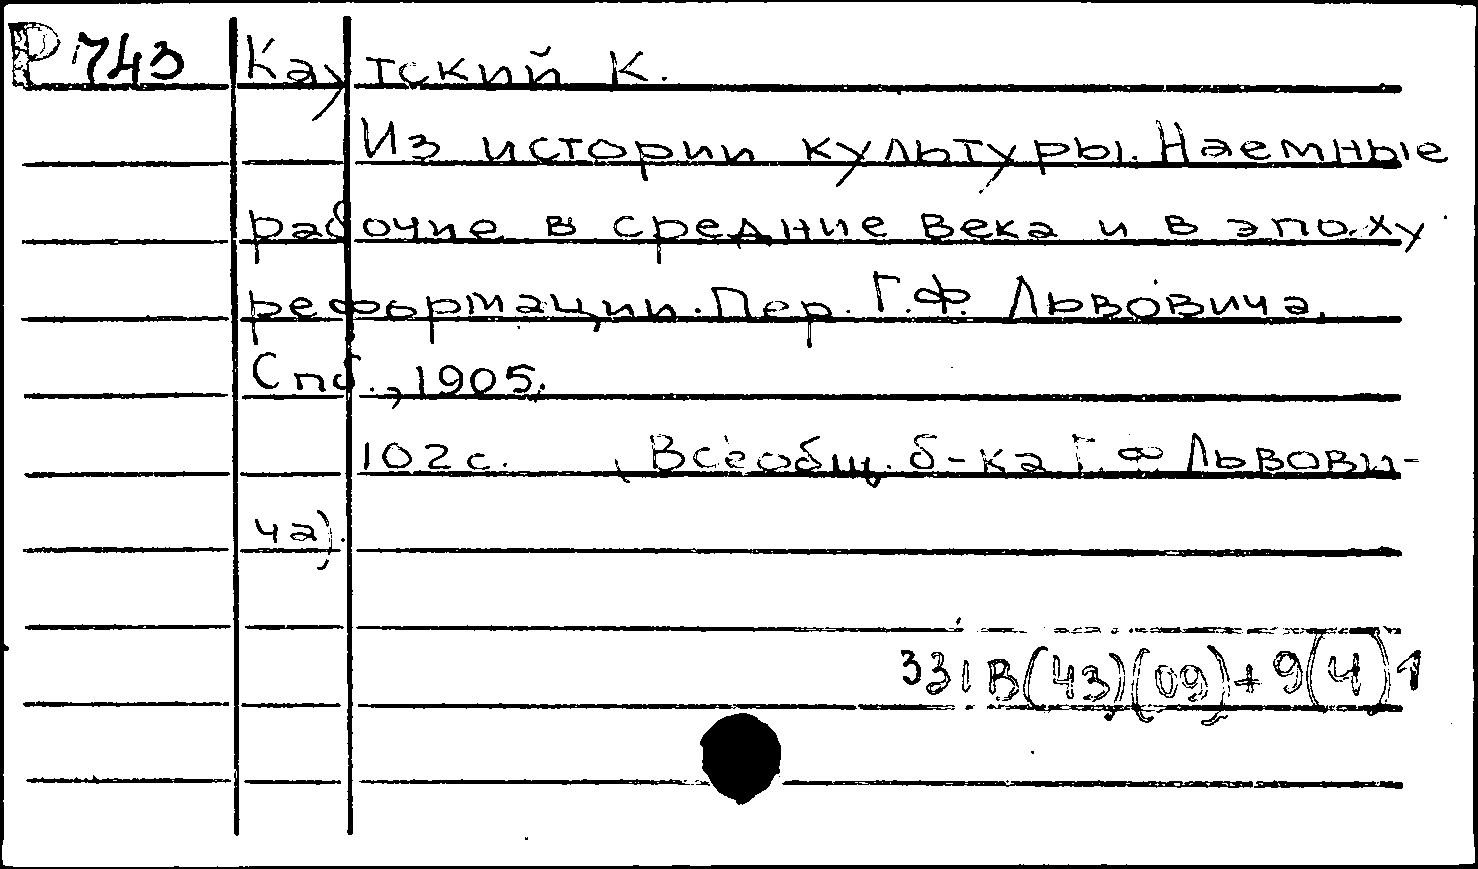 Р 743 Каутский К.
Из истории культуры. Наемные
рабочие в средние века и в эпоху
реформации. Пер. Г.Ф. Львовича.
Спб., 1905.
102 с. (Всеобщ. б-ка Г.Ф Львови-
ча).
331В(43)(09)+9(4)1